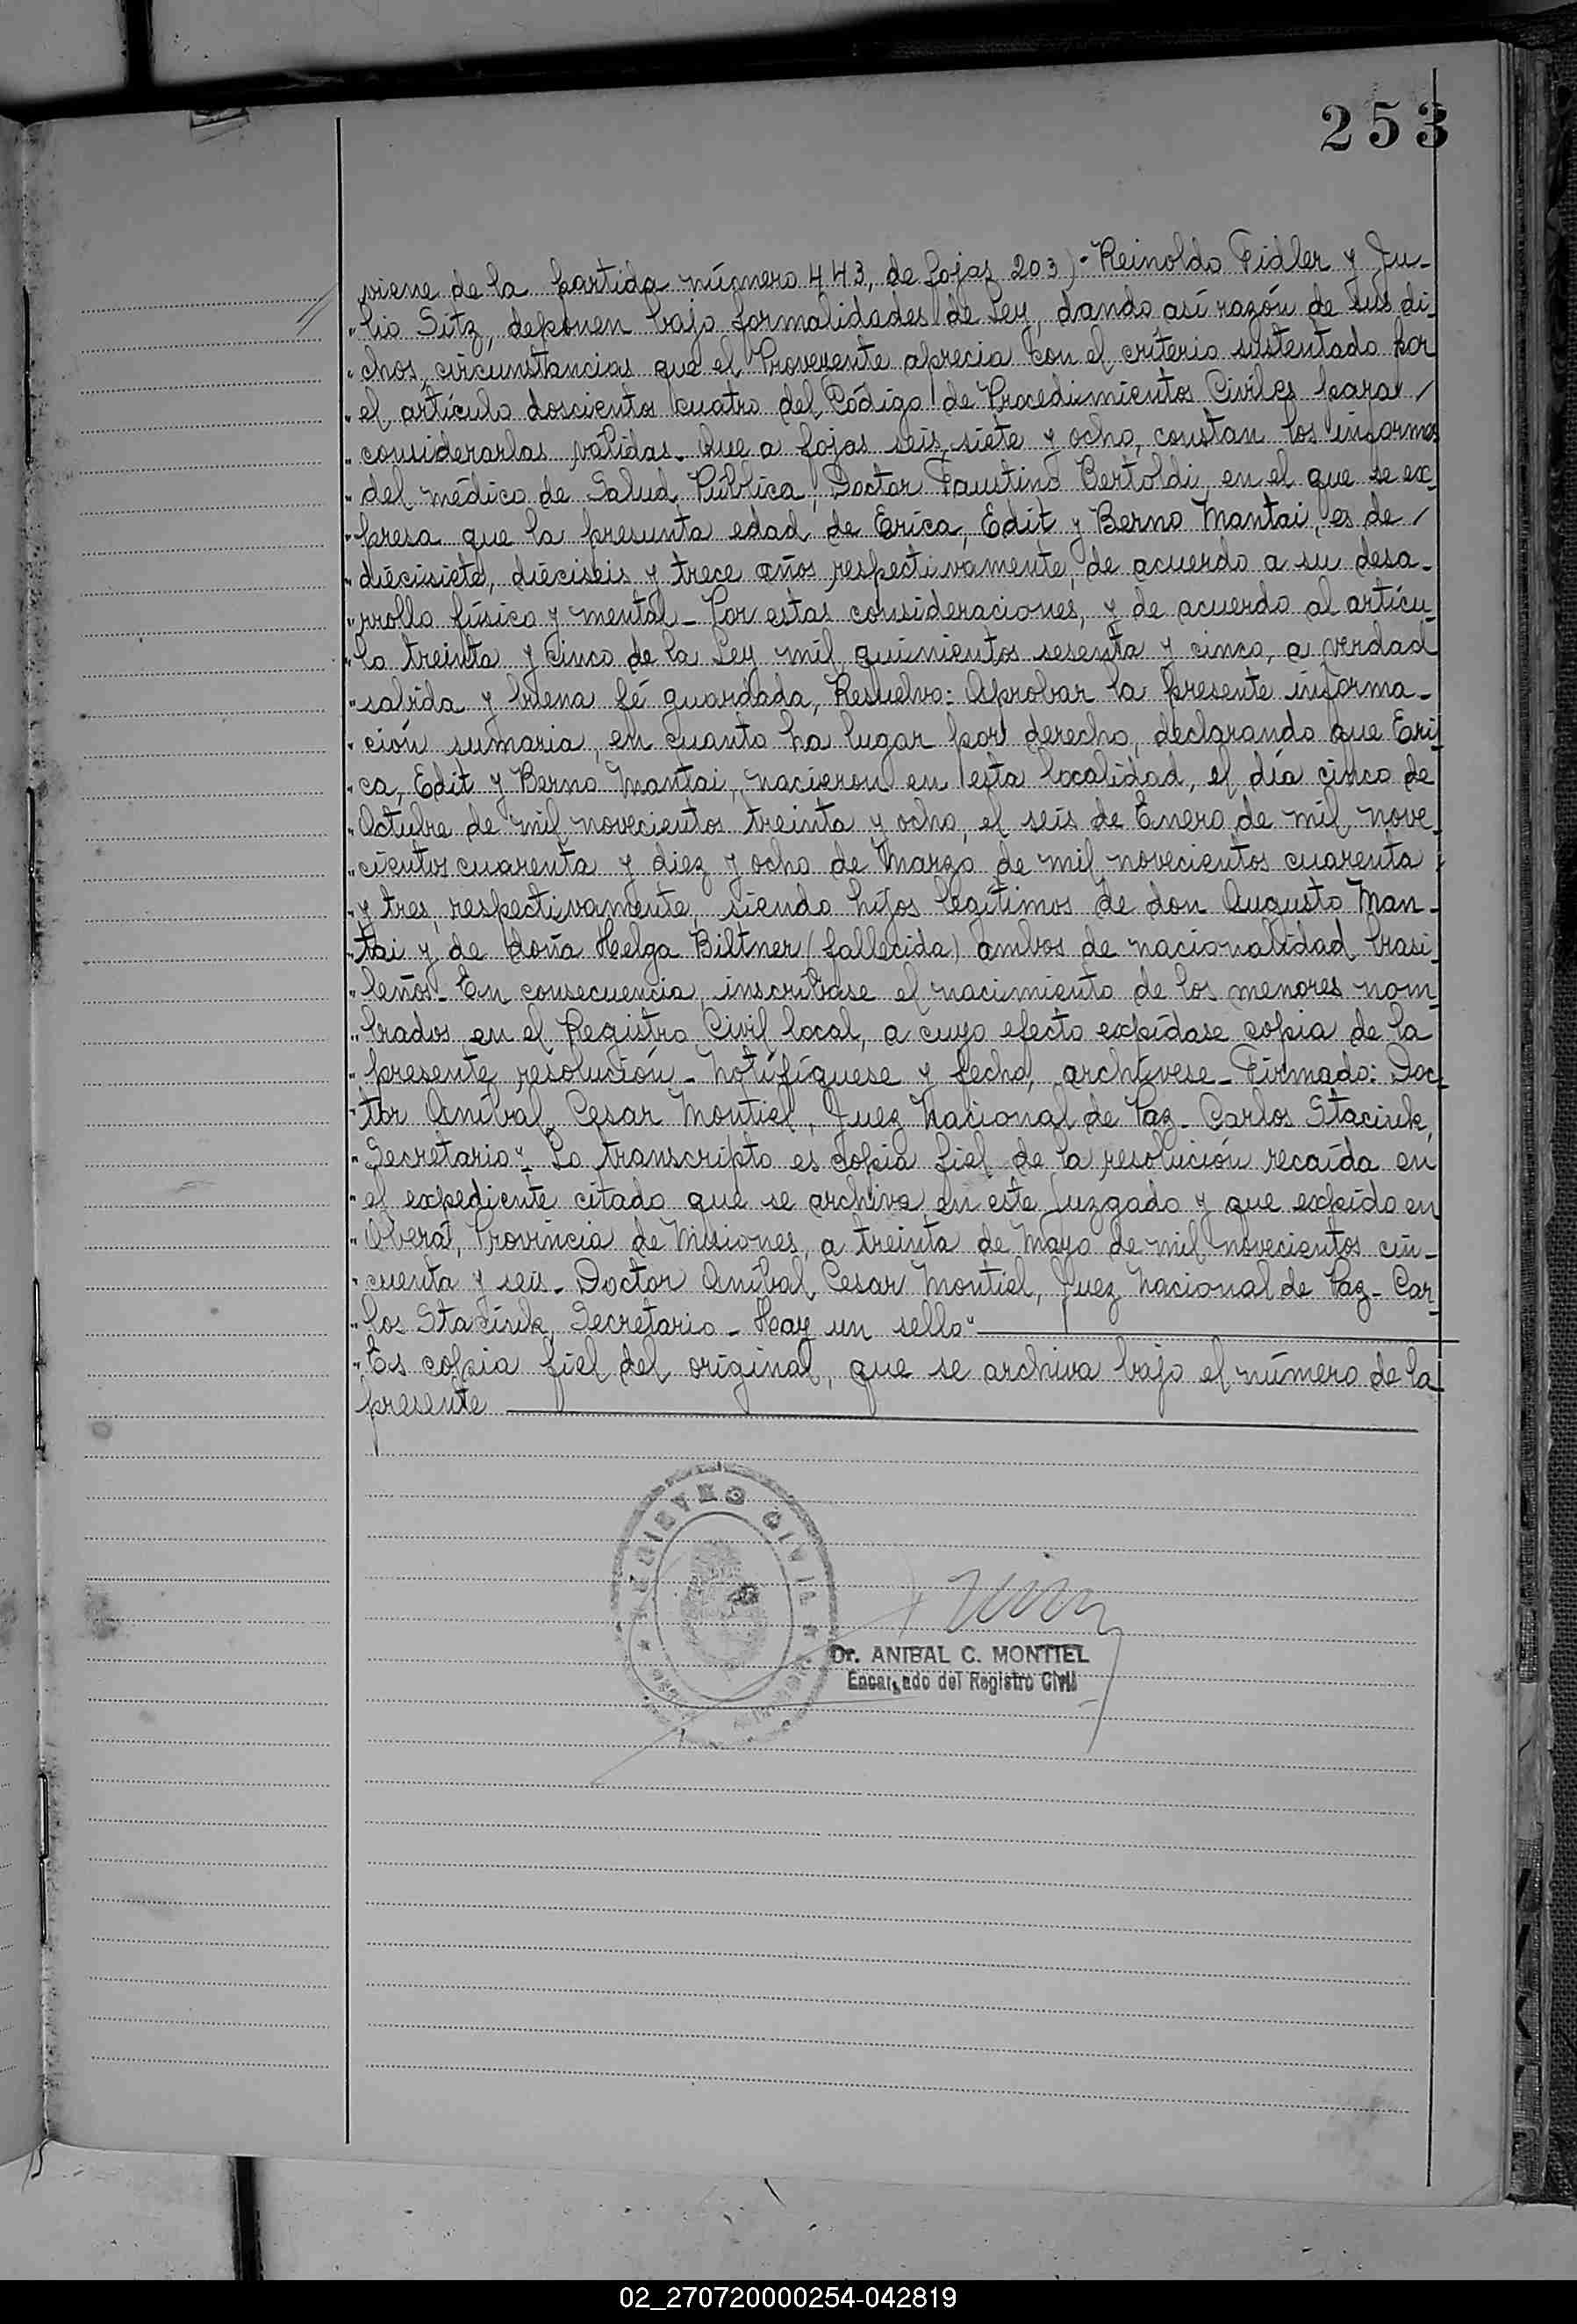 253
viene de la partida número 443, de fojas 203)- Reinoldo Fidler y Ju-
"lio Sitz, deponen bajo formalidades de Ley, dando así razón de sus di-
"chos, circunstancias que el Proveyente aprecia con el criterio sustentado por
"el artículo doscientos cuatro del Código de Procedimientos Civiles para /
"considerarlas válidas. Que a fojas seis, siete y ocho, constan los informes
"del médico de Salud Pública, Doctor Faustino Bertoldi, en el que se ex-
"presa que la presunta edad de Erica, Edit y Berno Mantai, es de /
"diecisiete, dieciseis y trece años respectivamente, de acuerdo a su desa-
"rrollo físico y mental- Por estas consideraciones, y de acuerdo al artícu-
"lo treinta y cinco de la Ley mil quinientos sesenta y cinco, a verdad
"sabida y buena fé guardada, Resuelvo: Aprobar la presente informa-
"ción sumaria, en cuanto ha lugar por derecho, declarando que Eri-
"ca, Edit y Berno Mantai, nacieron en esta localidad, el día cinco de
"Octubre de mil novecientos treinta y ocho, el seis de Enero de mil nove-
"cientos cuarenta y diez y ocho de Marzo de mil novecientos cuarenta
"y tres, respectivamente, siendo hijos legítimos de don Augusto Man-
"tai y de doña Helga Biltner (fallecida) ambos de nacionalidad brasi-
"leños- En consecuencia, inscríbase el nacimiento de los menores nom-
"brados en el Registro Civil local, a cuyo efecto expídase copia de la
"presente resolución- Notifíquese y fecho, archívese- Firmado: Doc-
"tor Aníbal Cesar Montiel, Juez Nacional de Paz- Carlos Staciuk,
"Secretario"- Lo transcripto es copia fiel de la resolución recaída en
"el expediente citado que se archiva en este Juzgado y que expido en
"Oberá, Provincia de Misiones, a treinta de Mayo de mil novecientos cin-
"cuenta y seis- Doctor Aníbal Cesar Montiel, Juez Nacional de Paz- Car-
"los Staciuk, Secretario- Hay un sello"
"Es copia fiel del original, que se archiva bajo el número de la
presente
REGISTRO CIVIL
Dr. ANIBAL C. MONTIEL
Encargado del Registro Civil
02_270720000254-042819